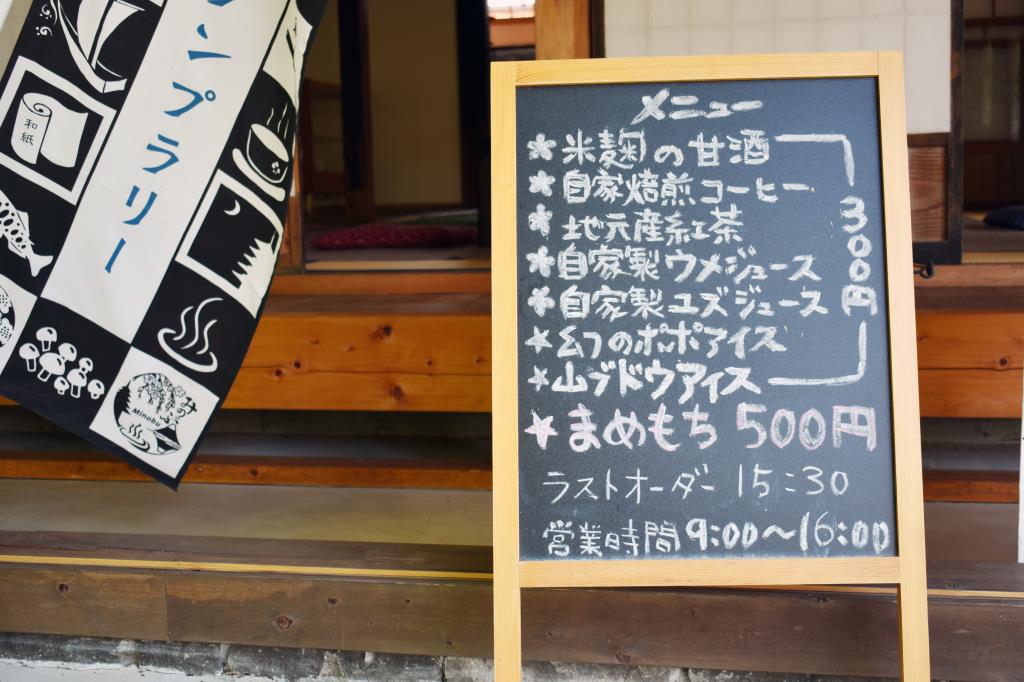 ンプラリー
和紙
みのぶ
Minobu
メニュー
★米麹の甘酒
★自家焙煎コーヒー
★地元産紅茶
★自家製ウメジュース
★自家製ユズジュース
★幻のポポアイス
★山ブドウアイス
300円
★まめもち 500円
ラストオーダー 15:30
営業時間 9:00〜16:00